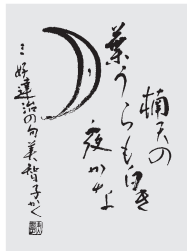 楠天の
葉うらも白き
夜かな
三好達治の句 美智子かく